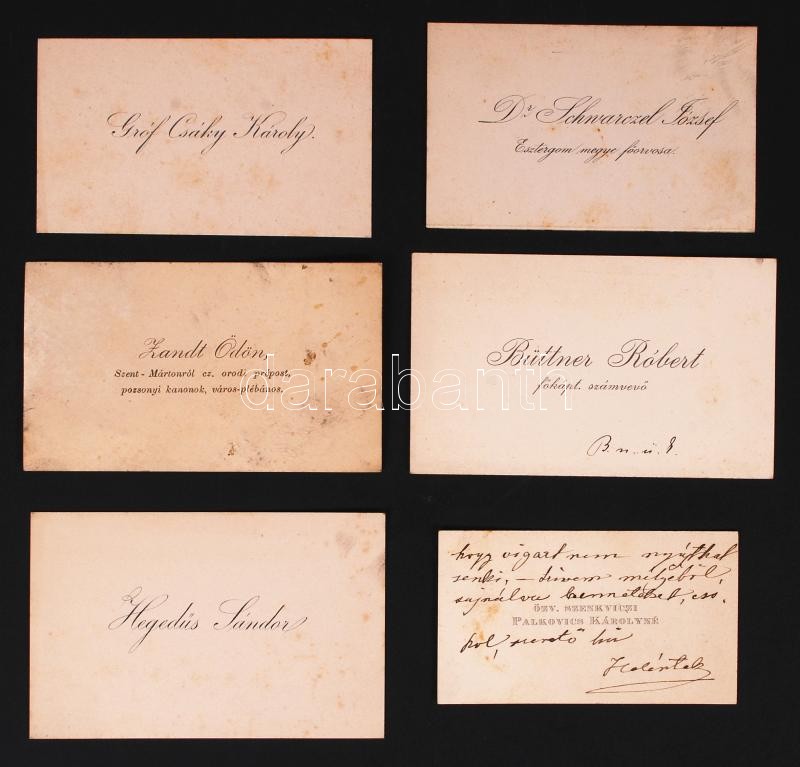 Gróf Csáky Károly.
Dr Schwarczel József
Esztergom megye főorvosa.
Zandt Ödön,
Szent-Mártonról cz. orodi prépost,
pozsonyi kanonok, város-plébános.
Büttner Róbert
főkápt. számvevő
B. n. ú. é.
Hegedűs Sándor
hogy vigart nem nyújthat
senki, – szívem mélyéből,
sajnálva benneteket, cso-
ÖZV. SZENKVICZI
PALKOVICS KÁROLYNÉ
kol, szerető hű
darabanth